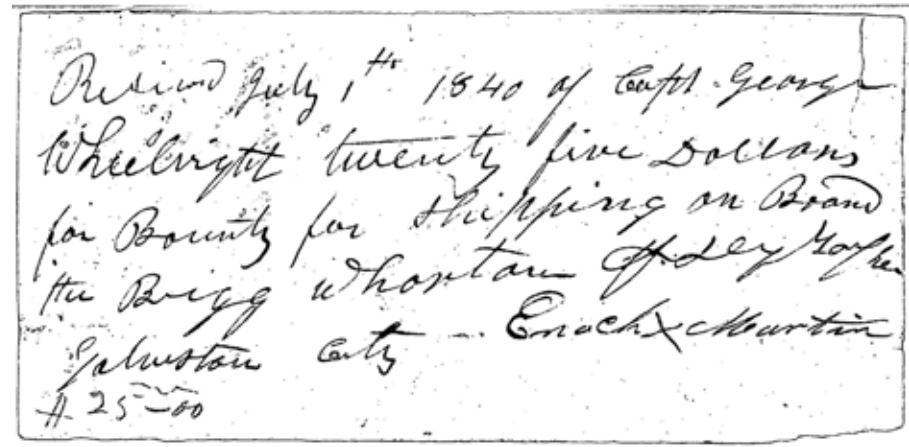 Recived July 1th 1840 of Capt. George
Wheelright twenty five Dollars
for Bounty for Shipping on Board
the Brigg Wharton
Galveston City - Enoch X Martin
$25-00